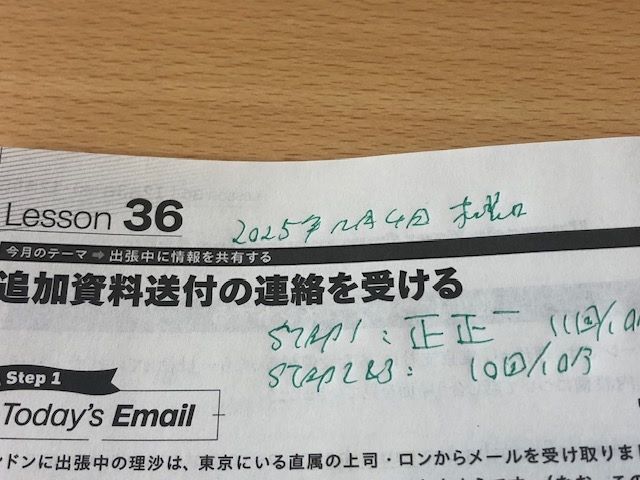 Lesson 36 2025年12月4日 木曜日
今月のテーマ ➡ 出張中に情報を共有する
追加資料送付の連絡を受ける
STEP1 : 正正一 11回/10
STEP2&3 : 10回/10
Step 1
Today's Email
ンドンに出張中の理沙は、東京にいる直属の上司・ロンからメールを受け取りま